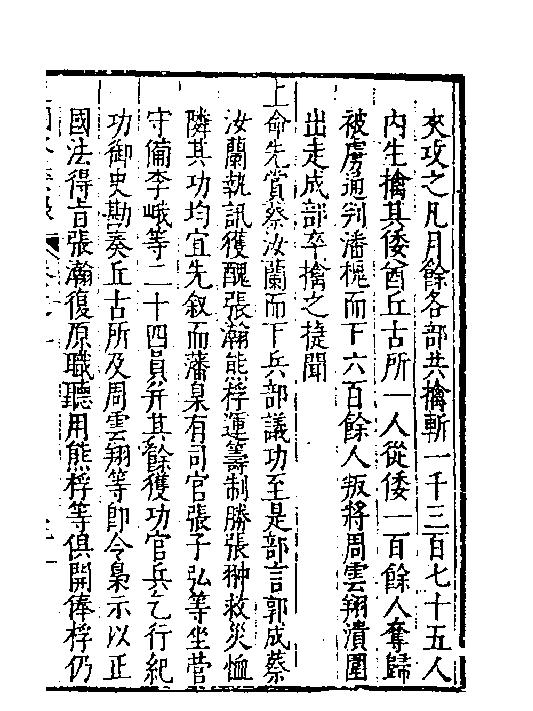 夾攻之凡月餘各部共擒斬一千三百七十五人
内生擒其倭酋丘古所一人從倭一百餘人奪歸
被虜通判潘槐而下六百餘人叛將周雲翔潰圍
出走成部卒擒之捷聞
上命先賞蔡汝蘭而下兵部議功至是部言郭成蔡
汝蘭執訊獲醜張瀚熊桴運籌制勝張翀救災恤
隣其功均宜先叙而藩臬有司官張子弘等坐營
守備李峨等二十四員并其餘獲功官兵乞行紀
功御史勘奏丘古所及周雲翔等即令梟示以正
國法得旨張瀚復原職聽用熊桴等俱開俸桴仍